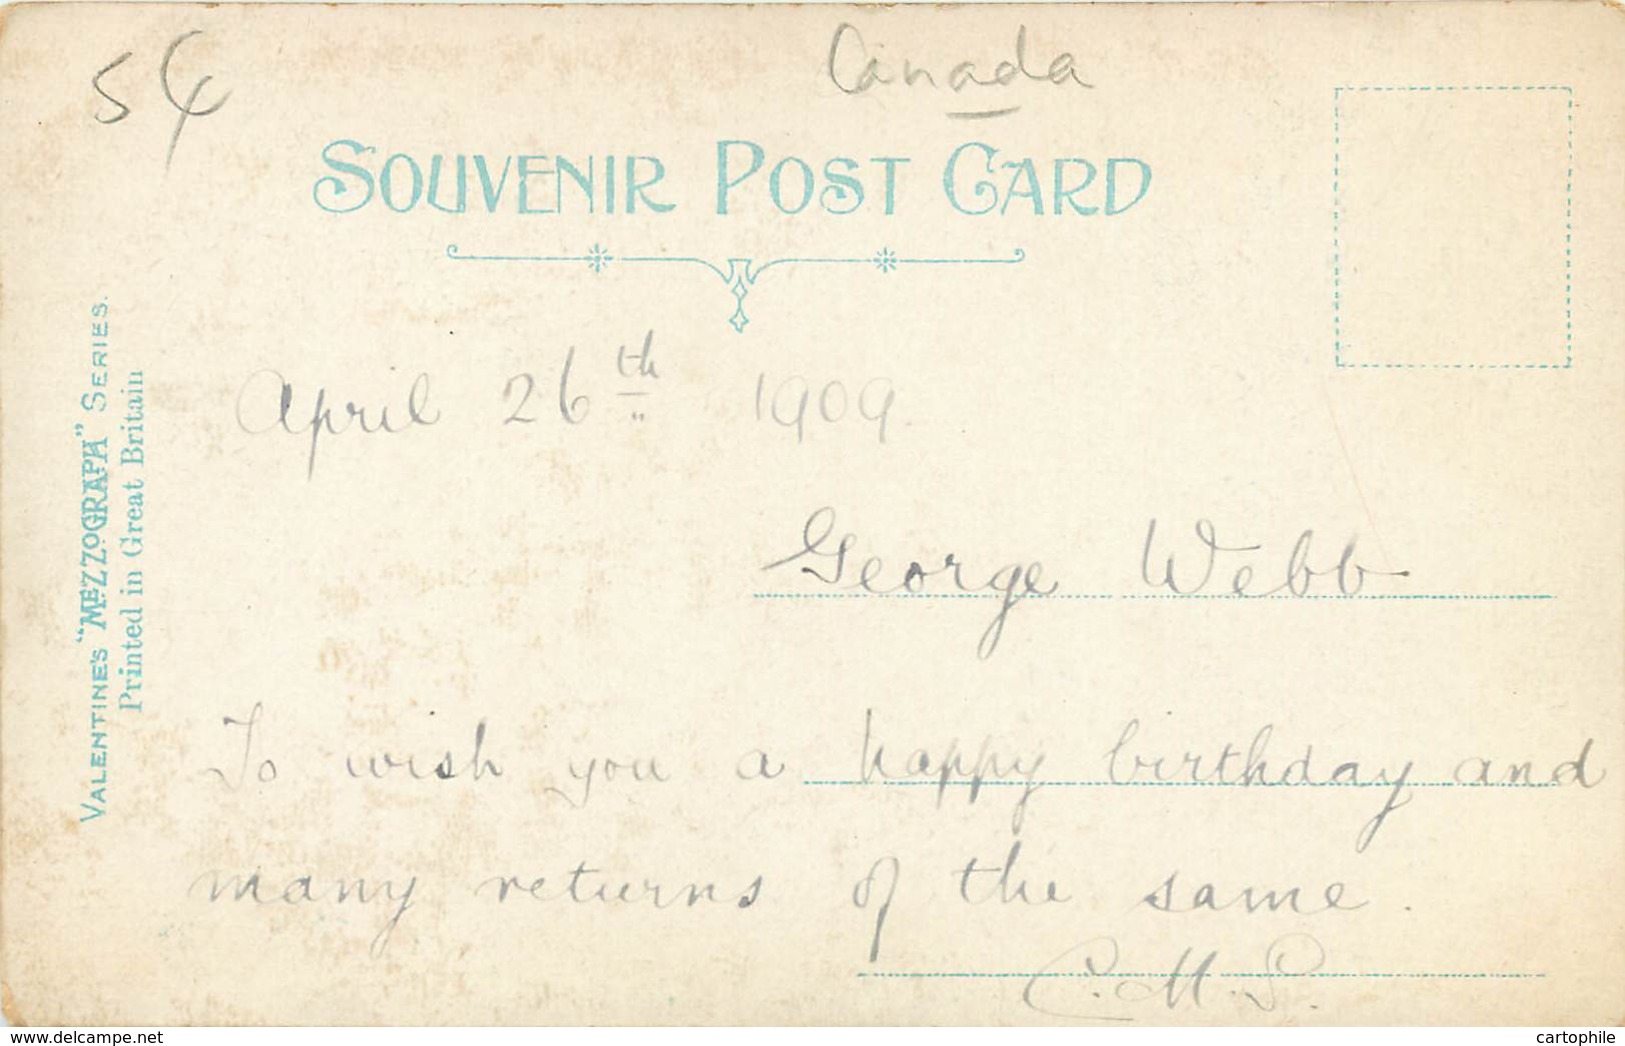 54
Canada
SOUVENIR POST CARD
VALENTINE'S "MEZZOGRAPH" SERIES.
Printed in Great Britain
April 26th 1909.
George Webb
To wish you a happy birthday and
many returns of the same.
C.M.S.
www.delcampe.net
cartophile